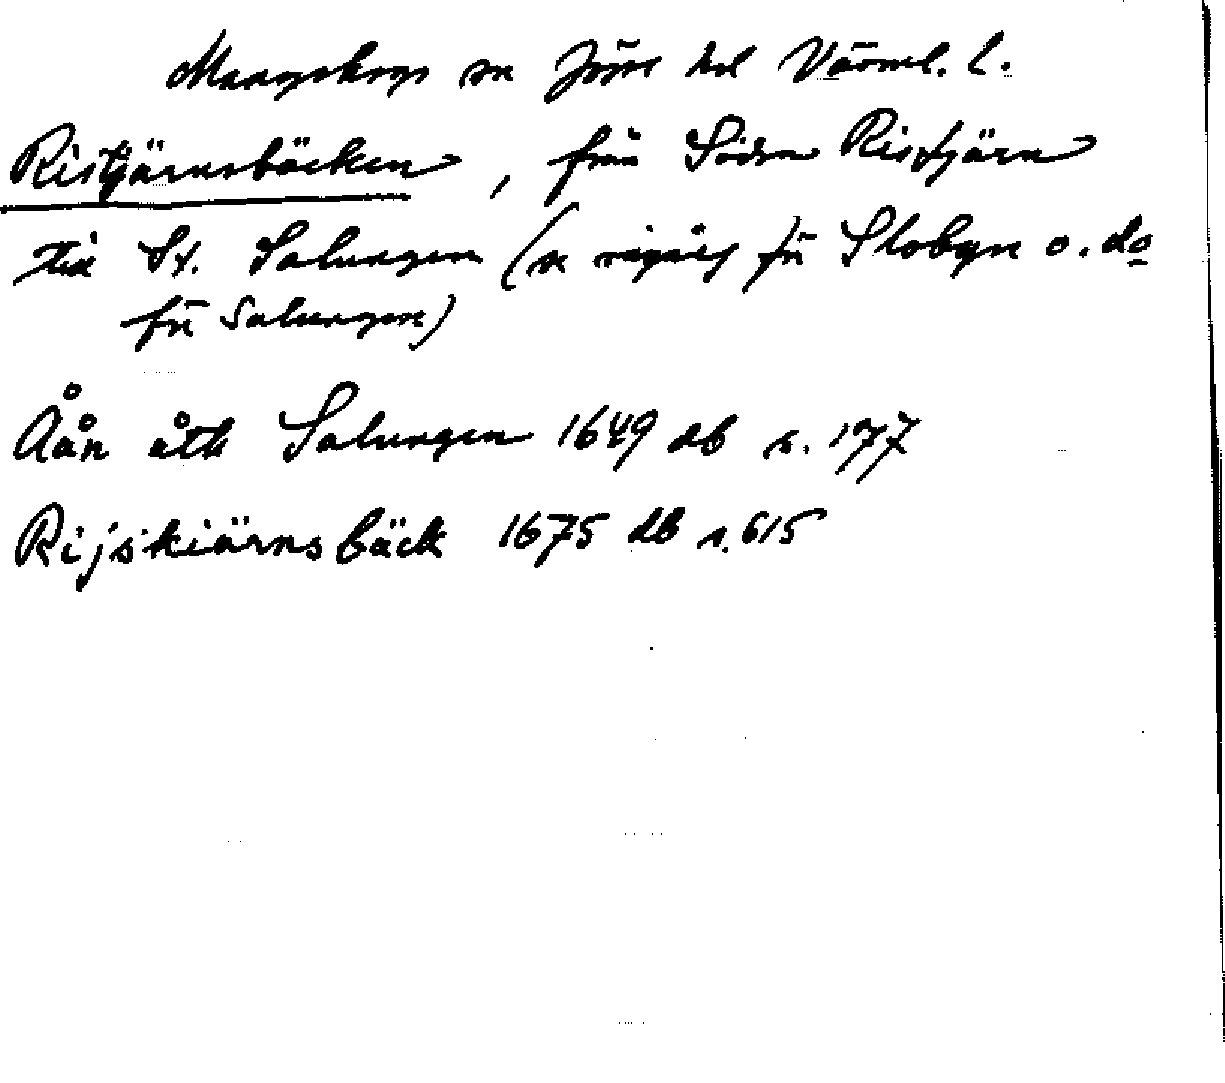 Mangskogs sn Jösse hd Värml. l.
Ristjärnsbäcken, från Södra Ristjärn
till St. Salungen (se rågång för Slobyn o. do
för Salungen)
Åån åth Salungen 1649 db s. 177
Rijskiärnsbäck 1675 db s. 615